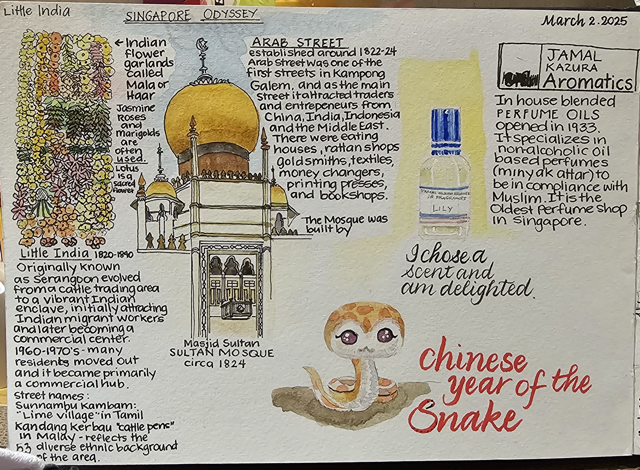 Little India
SINGAPORE ODYSSEY
March 2.2025
← Indian
flower
garlands
called
Mala or
Haar
Jasmine
Roses
and
marigolds
are
often
used.
Lotus
is a
sacred
flower
ARAB STREET
established around 1822-24
Arab Street was one of the
first streets in Kampong
Galem, and as the main
street it attracted traders
and entrepeneurs from
China, India, Indonesia
and the Middle East.
There were eating
houses, rattan shops
goldsmiths, textiles,
money changers,
printing presses,
and bookshops.
The Mosque was
built by
JAMAL
KAZURA
Aromatics
In house blended
PERFUME OILS
opened in 1933.
It specializes in
nonalcoholic oil
based perfumes
(minyak attar) to
be in compliance with
Muslim. It is the
Oldest Perfume shop
in Singapore.
LILY
I chose a
scent and
am delighted.
Little India 1820-1890
Originally known
as Serangoon evolved
from a cattle trading area
to a vibrant Indian
enclave, initially attracting
Indian migrant workers
and later becoming a
commercial center.
1960-1970's - many
residents moved out
and it became primarily
a commercial hub.
street names:
Sunnambu Kambam:
"Lime village" in Tamil
Kandang Kerbau "cattle pens"
in Malay - reflects the
diverse ethnic background
of the area.
Masjid Sultan
SULTAN MOSQUE
circa 1824
chinese
year of the
Snake